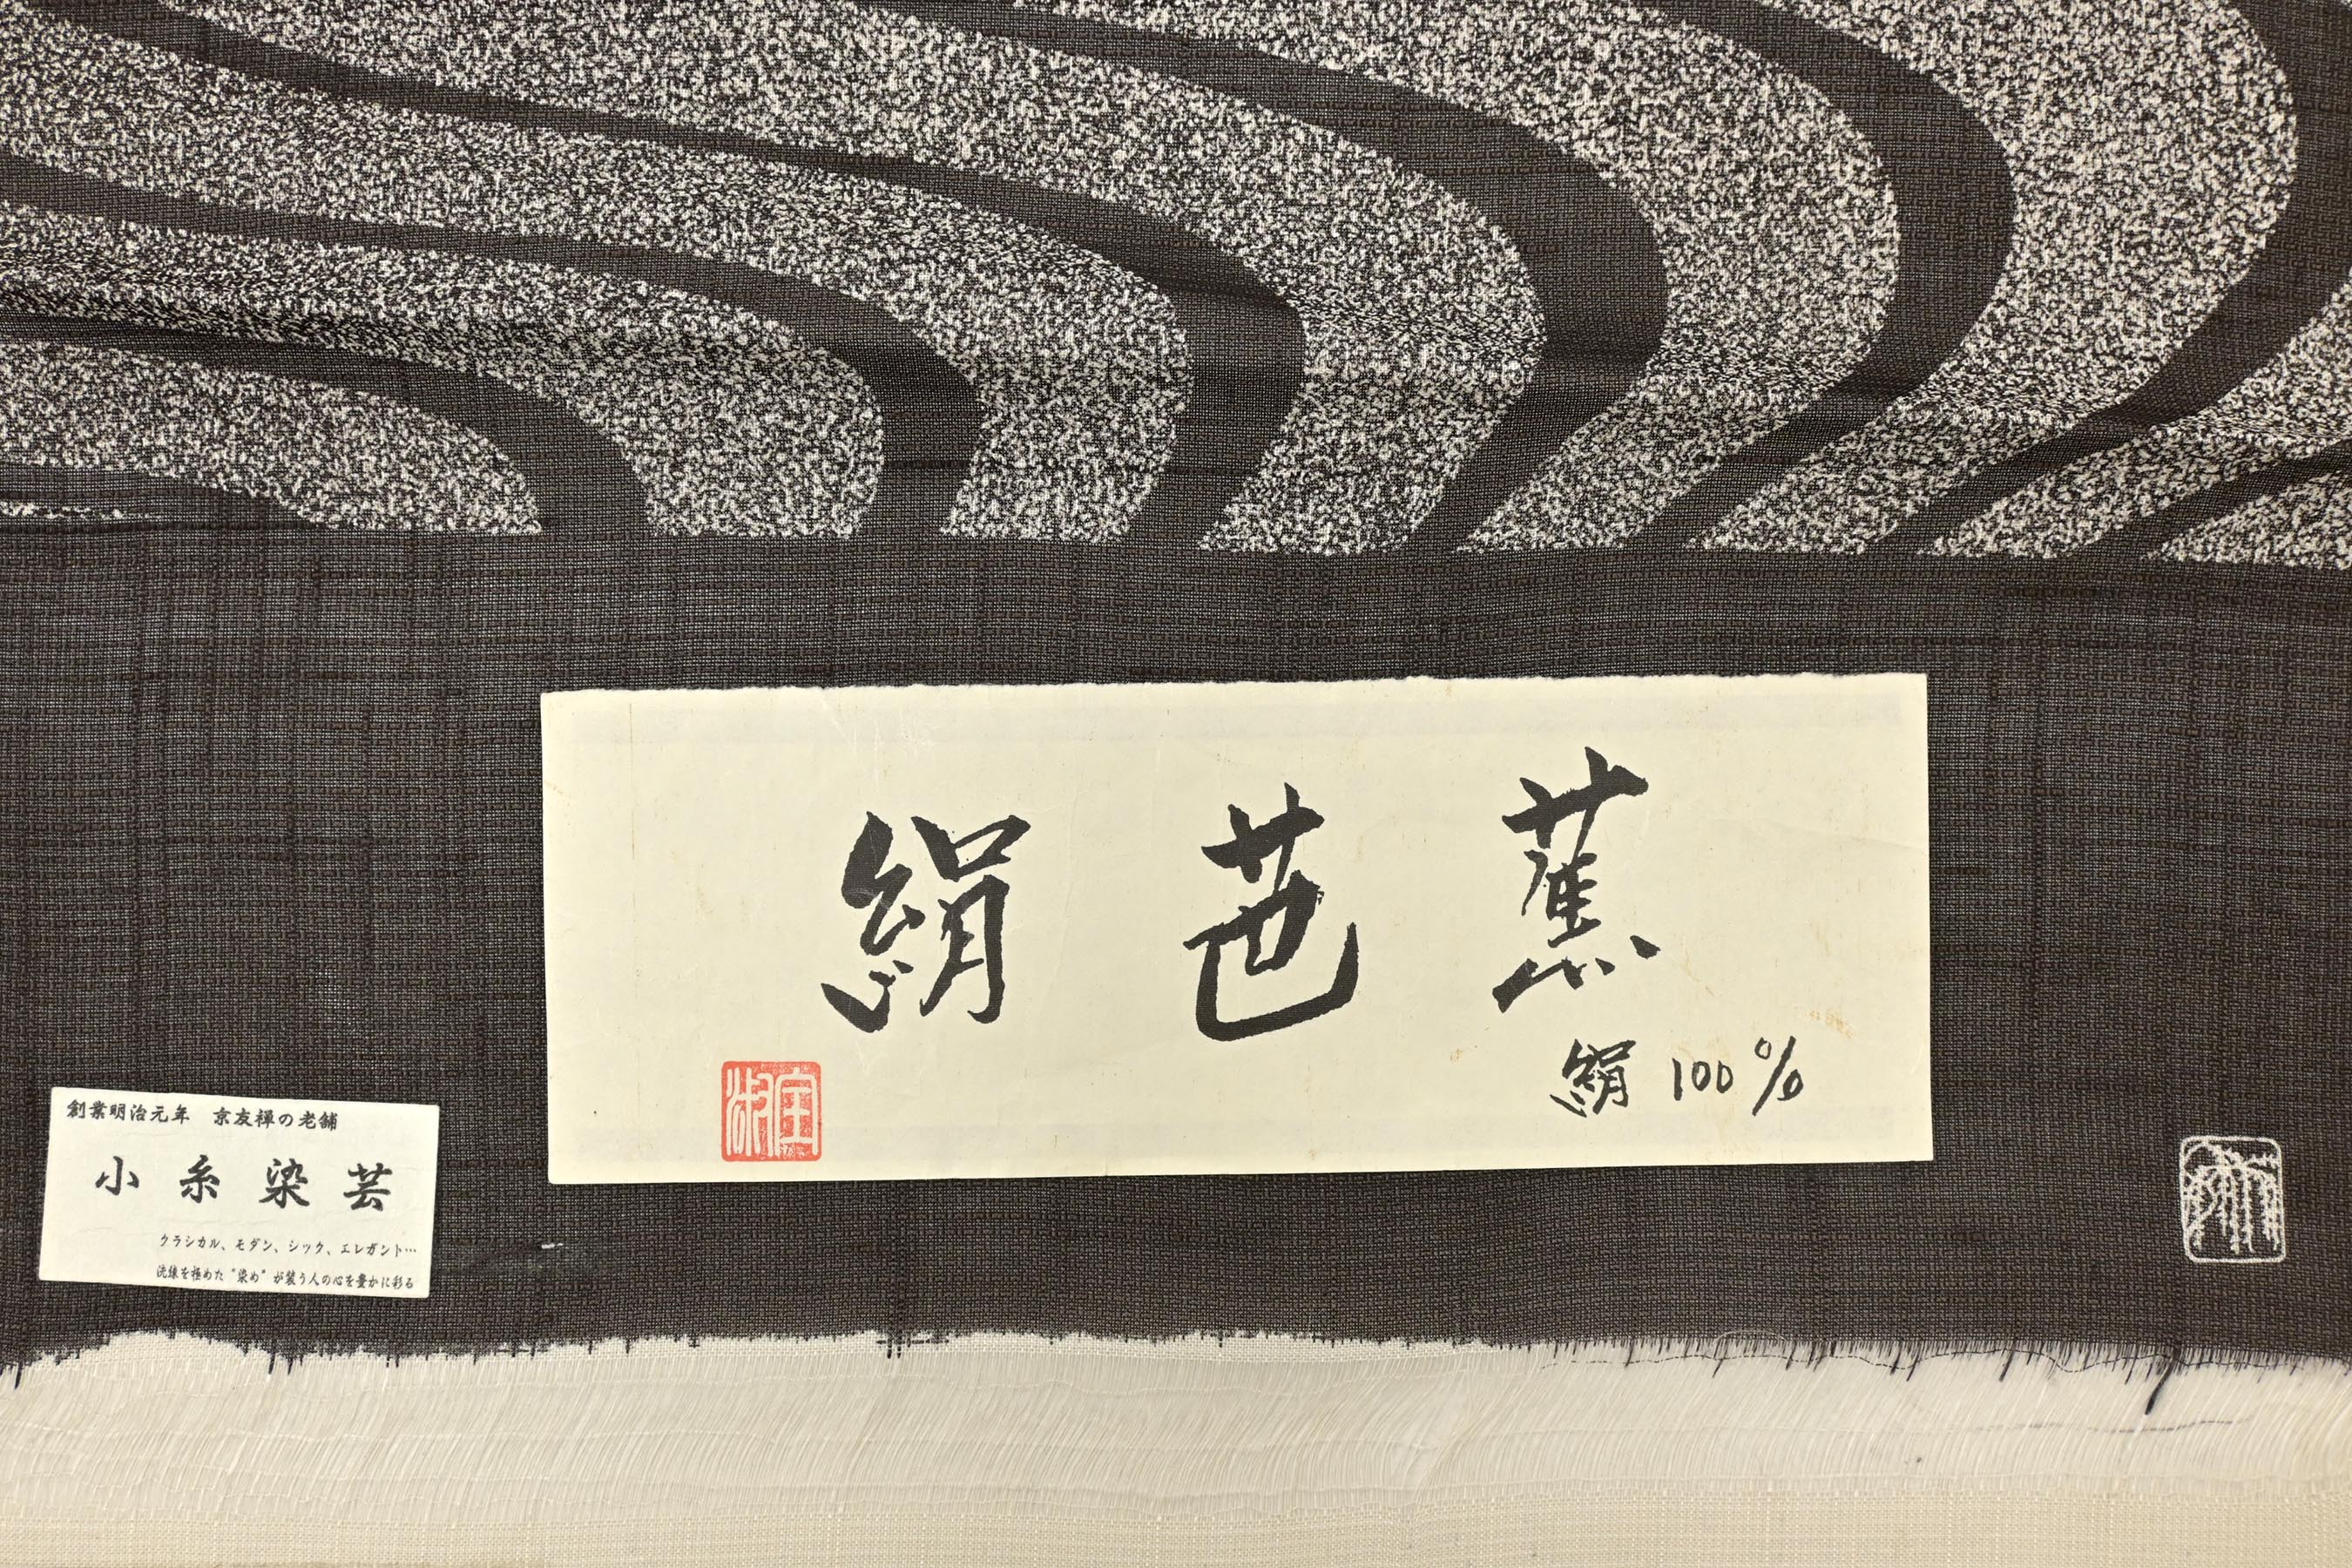 絹芭蕉
絹 100%
創業明治元年 京友禅の老舗
小糸染芸
クラシカル、モダン、シック、エレガント…
洗練を極めた"染め"が装う人の心を豊かに彩る